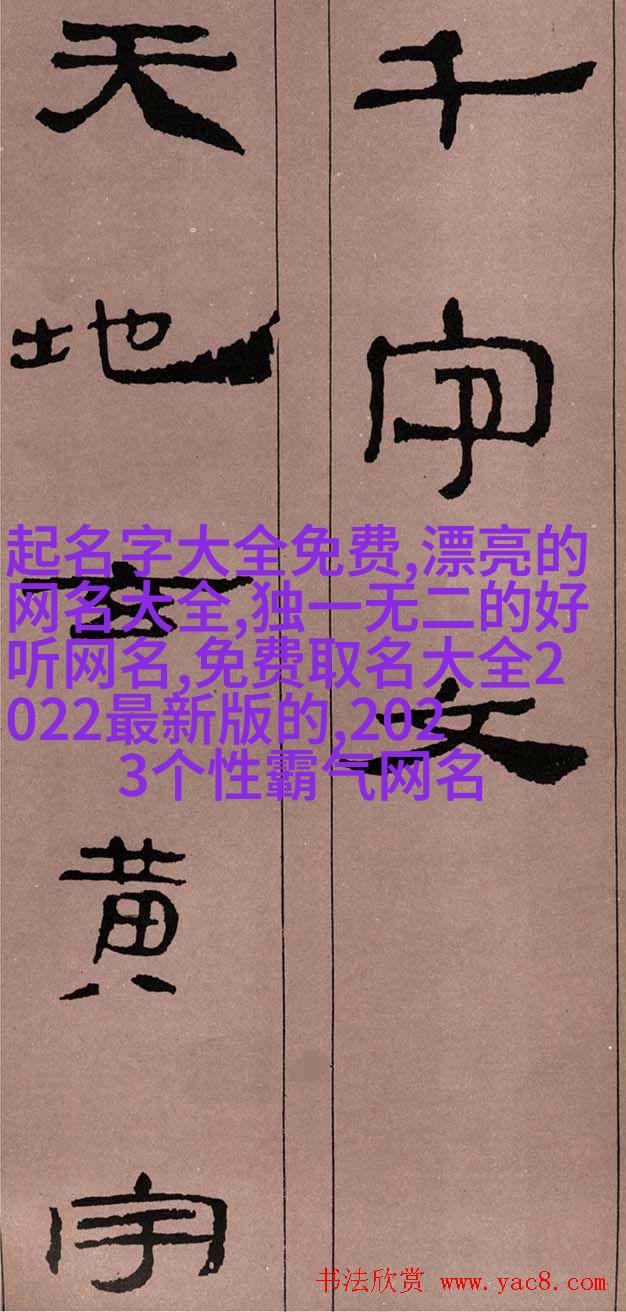 千字文
天地玄黃宇
起名字大全免费,漂亮的
网名大全,独一无二的好
听网名,免费取名大全2
022最新版的,202
3个性霸气网名
书法欣赏 www.yac8.com